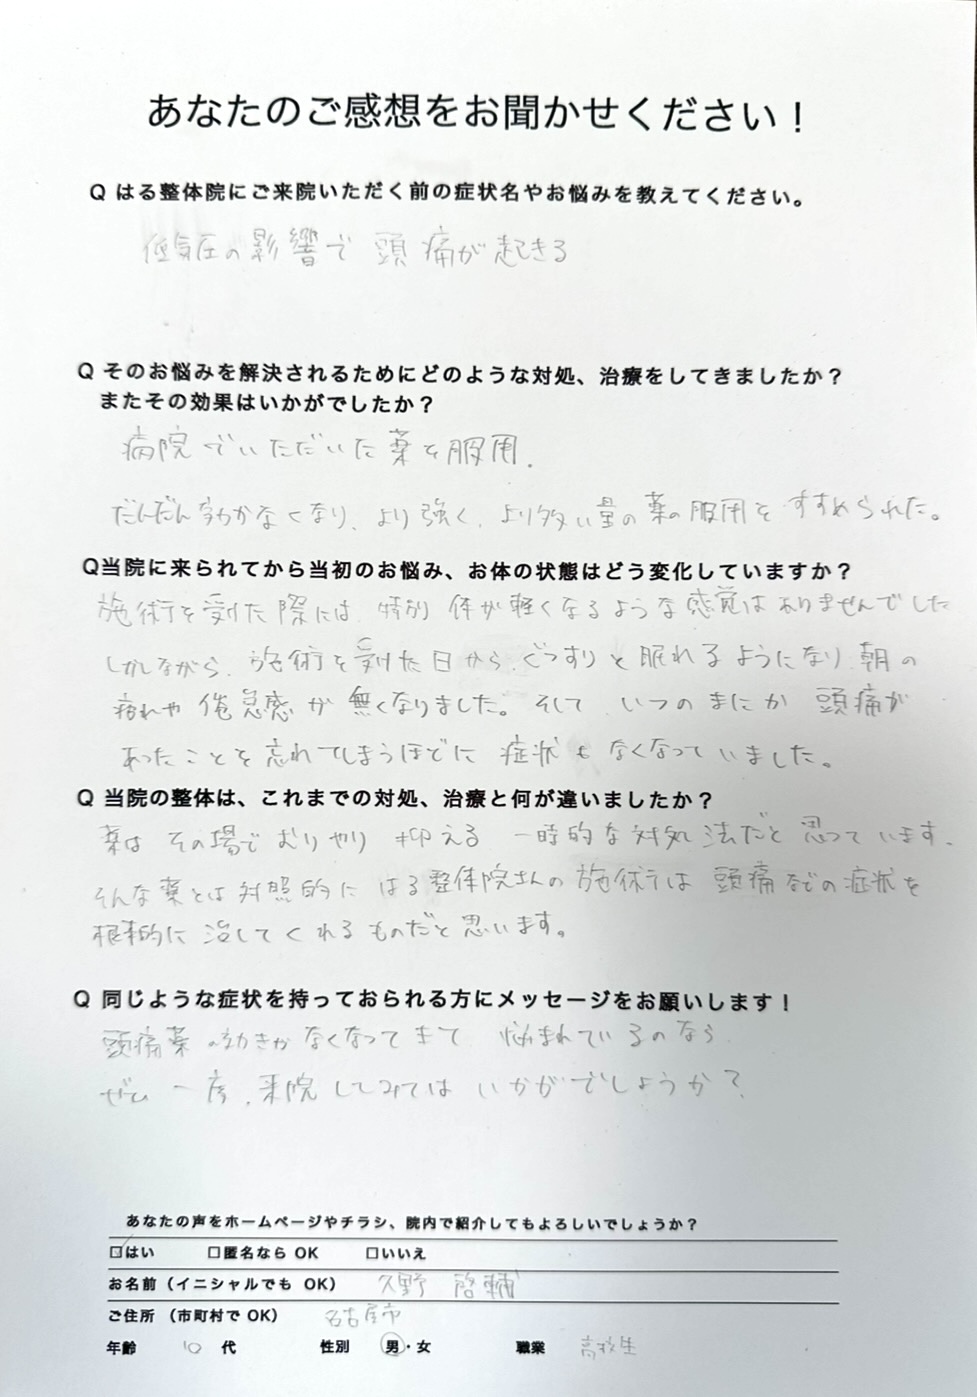 あなたのご感想をお聞かせください！
Q はる整体院にご来院いただく前の症状名やお悩みを教えてください。
低気圧の影響で 頭痛が起きる
Q そのお悩みを解決されるためにどのような対処、治療をしてきましたか？
またその効果はいかがでしたか？
病院でいただいた薬を服用.
だんだん効かなくなり、より強く、より多い量の薬の服用をすすめられた。
Q当院に来られてから当初のお悩み、お体の状態はどう変化していますか？
施術を受けた際には、特別 体が軽くなるような感覚はありませんでした
しかしながら、施術を受けた日から、ぐっすりと眠れるようになり、朝の
疲れや 倦怠感が 無くなりました。そして、いつのまにか 頭痛が
あったことを忘れてしまうほどに 症状もなくなっていました。
Q 当院の整体は、これまでの対処、治療と何が違いましたか？
薬は その場でむりやり 抑える 一時的な対処法だと思っています.
そんな薬とは対照的に はる整体院さんの施術は 頭痛などの症状を
根本的に 治してくれるものだと思います。
Q 同じような症状を持っておられる方にメッセージをお願いします！
頭痛薬の効きがなくなってきて、悩まれているのなら、
ぜひ 一度、来院してみては いかがでしょうか？
あなたの声をホームページやチラシ、院内で紹介してもよろしいでしょうか？
☑はい □匿名なら OK □いいえ
お名前（イニシャルでも OK） 久野 啓輔
ご住所 （市町村で OK） 名古屋市
年齢 10 代 性別 男・女 職業 高校生